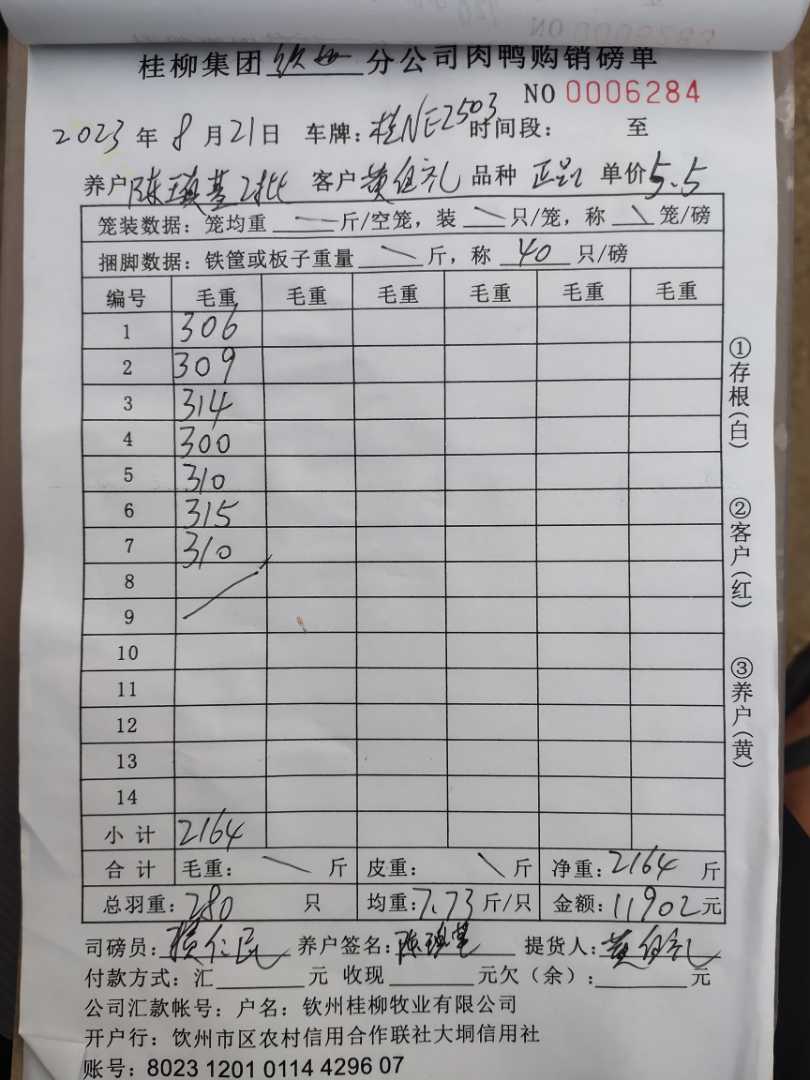 桂柳集团钦州分公司肉鸭购销磅单
NO 0006284
2023年8月21日 车牌:桂NE2503 时间段: 至
养户 陈 2批 客户 黄伯礼 品种 单价5.5
笼装数据:笼均重 — 斤/空笼,装 \ 只/笼,称 \ 笼/磅
捆脚数据:铁筐或板子重量 \ 斤,称 40 只/磅
编号 毛重 毛重 毛重 毛重 毛重 毛重
1 306
2 309
3 314
4 300
5 310
6 315
7 310
8
9
10
11
12
13
14
小计 2164
合计 毛重: \ 斤 皮重: \ 斤 净重:2164 斤
总羽重:280 只 均重:7.73斤/只 金额:11902元
司磅员: 仁民 养户签名:陈 提货人:黄伯礼
付款方式:汇 元 收现 元欠(余): 元
公司汇款帐号:户名:钦州桂柳牧业有限公司
开户行:饮州市区农村信用合作联社大垌信用社
账号:8023 1201 0114 4296 07
①存根(白)
②客户(红)
③养户(黄)